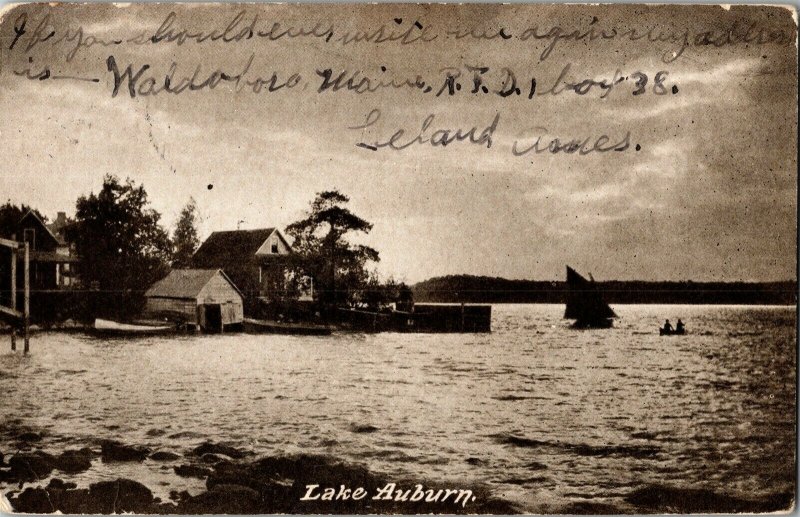 If you should ever write me agin my address
is — Waldoboro, Maine, R.F.D., box 38.
Leland
Lake Auburn.